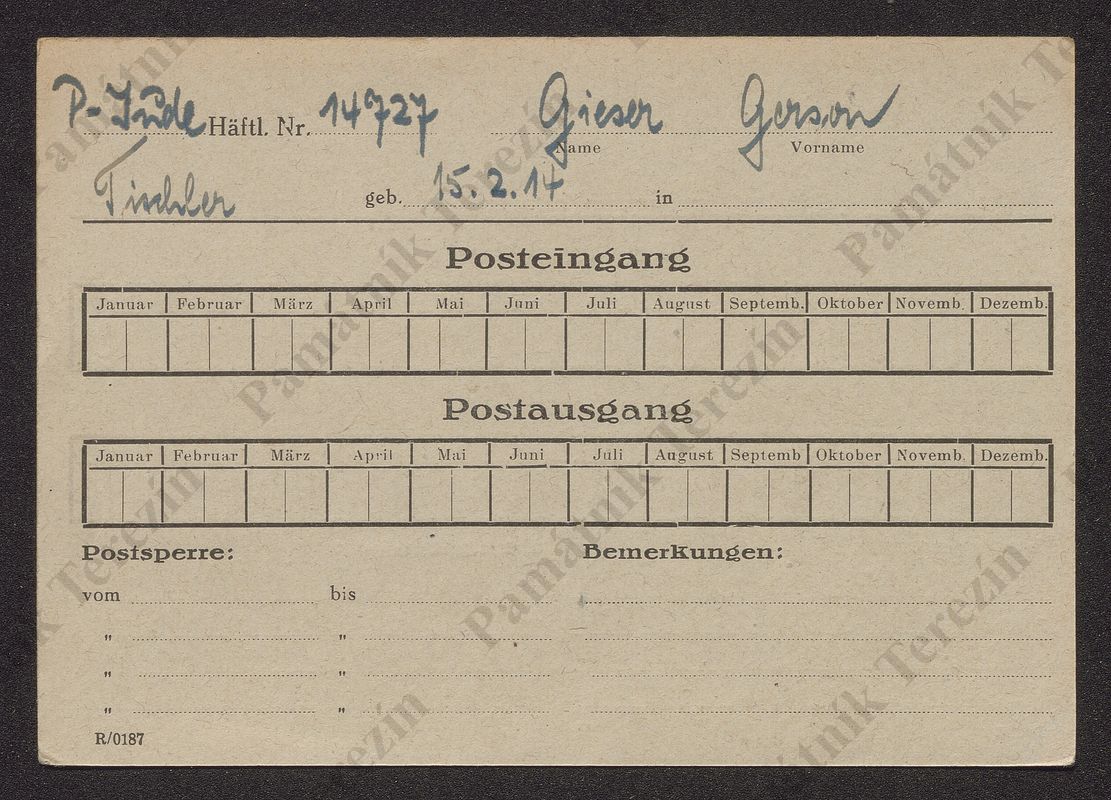 P-Jude Häftl. Nr. 14727 Gieser Gerson
Name Vorname
Tischler geb. 15.2.14 in
Posteingang
Januar Februar März April Mai Juni Juli August Septemb. Oktober Novemb. Dezemb.
Postausgang
Januar Februar März April Mai Juni Juli August Septemb Oktober Novemb. Dezemb.
Postsperre: Bemerkungen:
vom bis
" "
" "
" "
R/0187
Památník Terezín